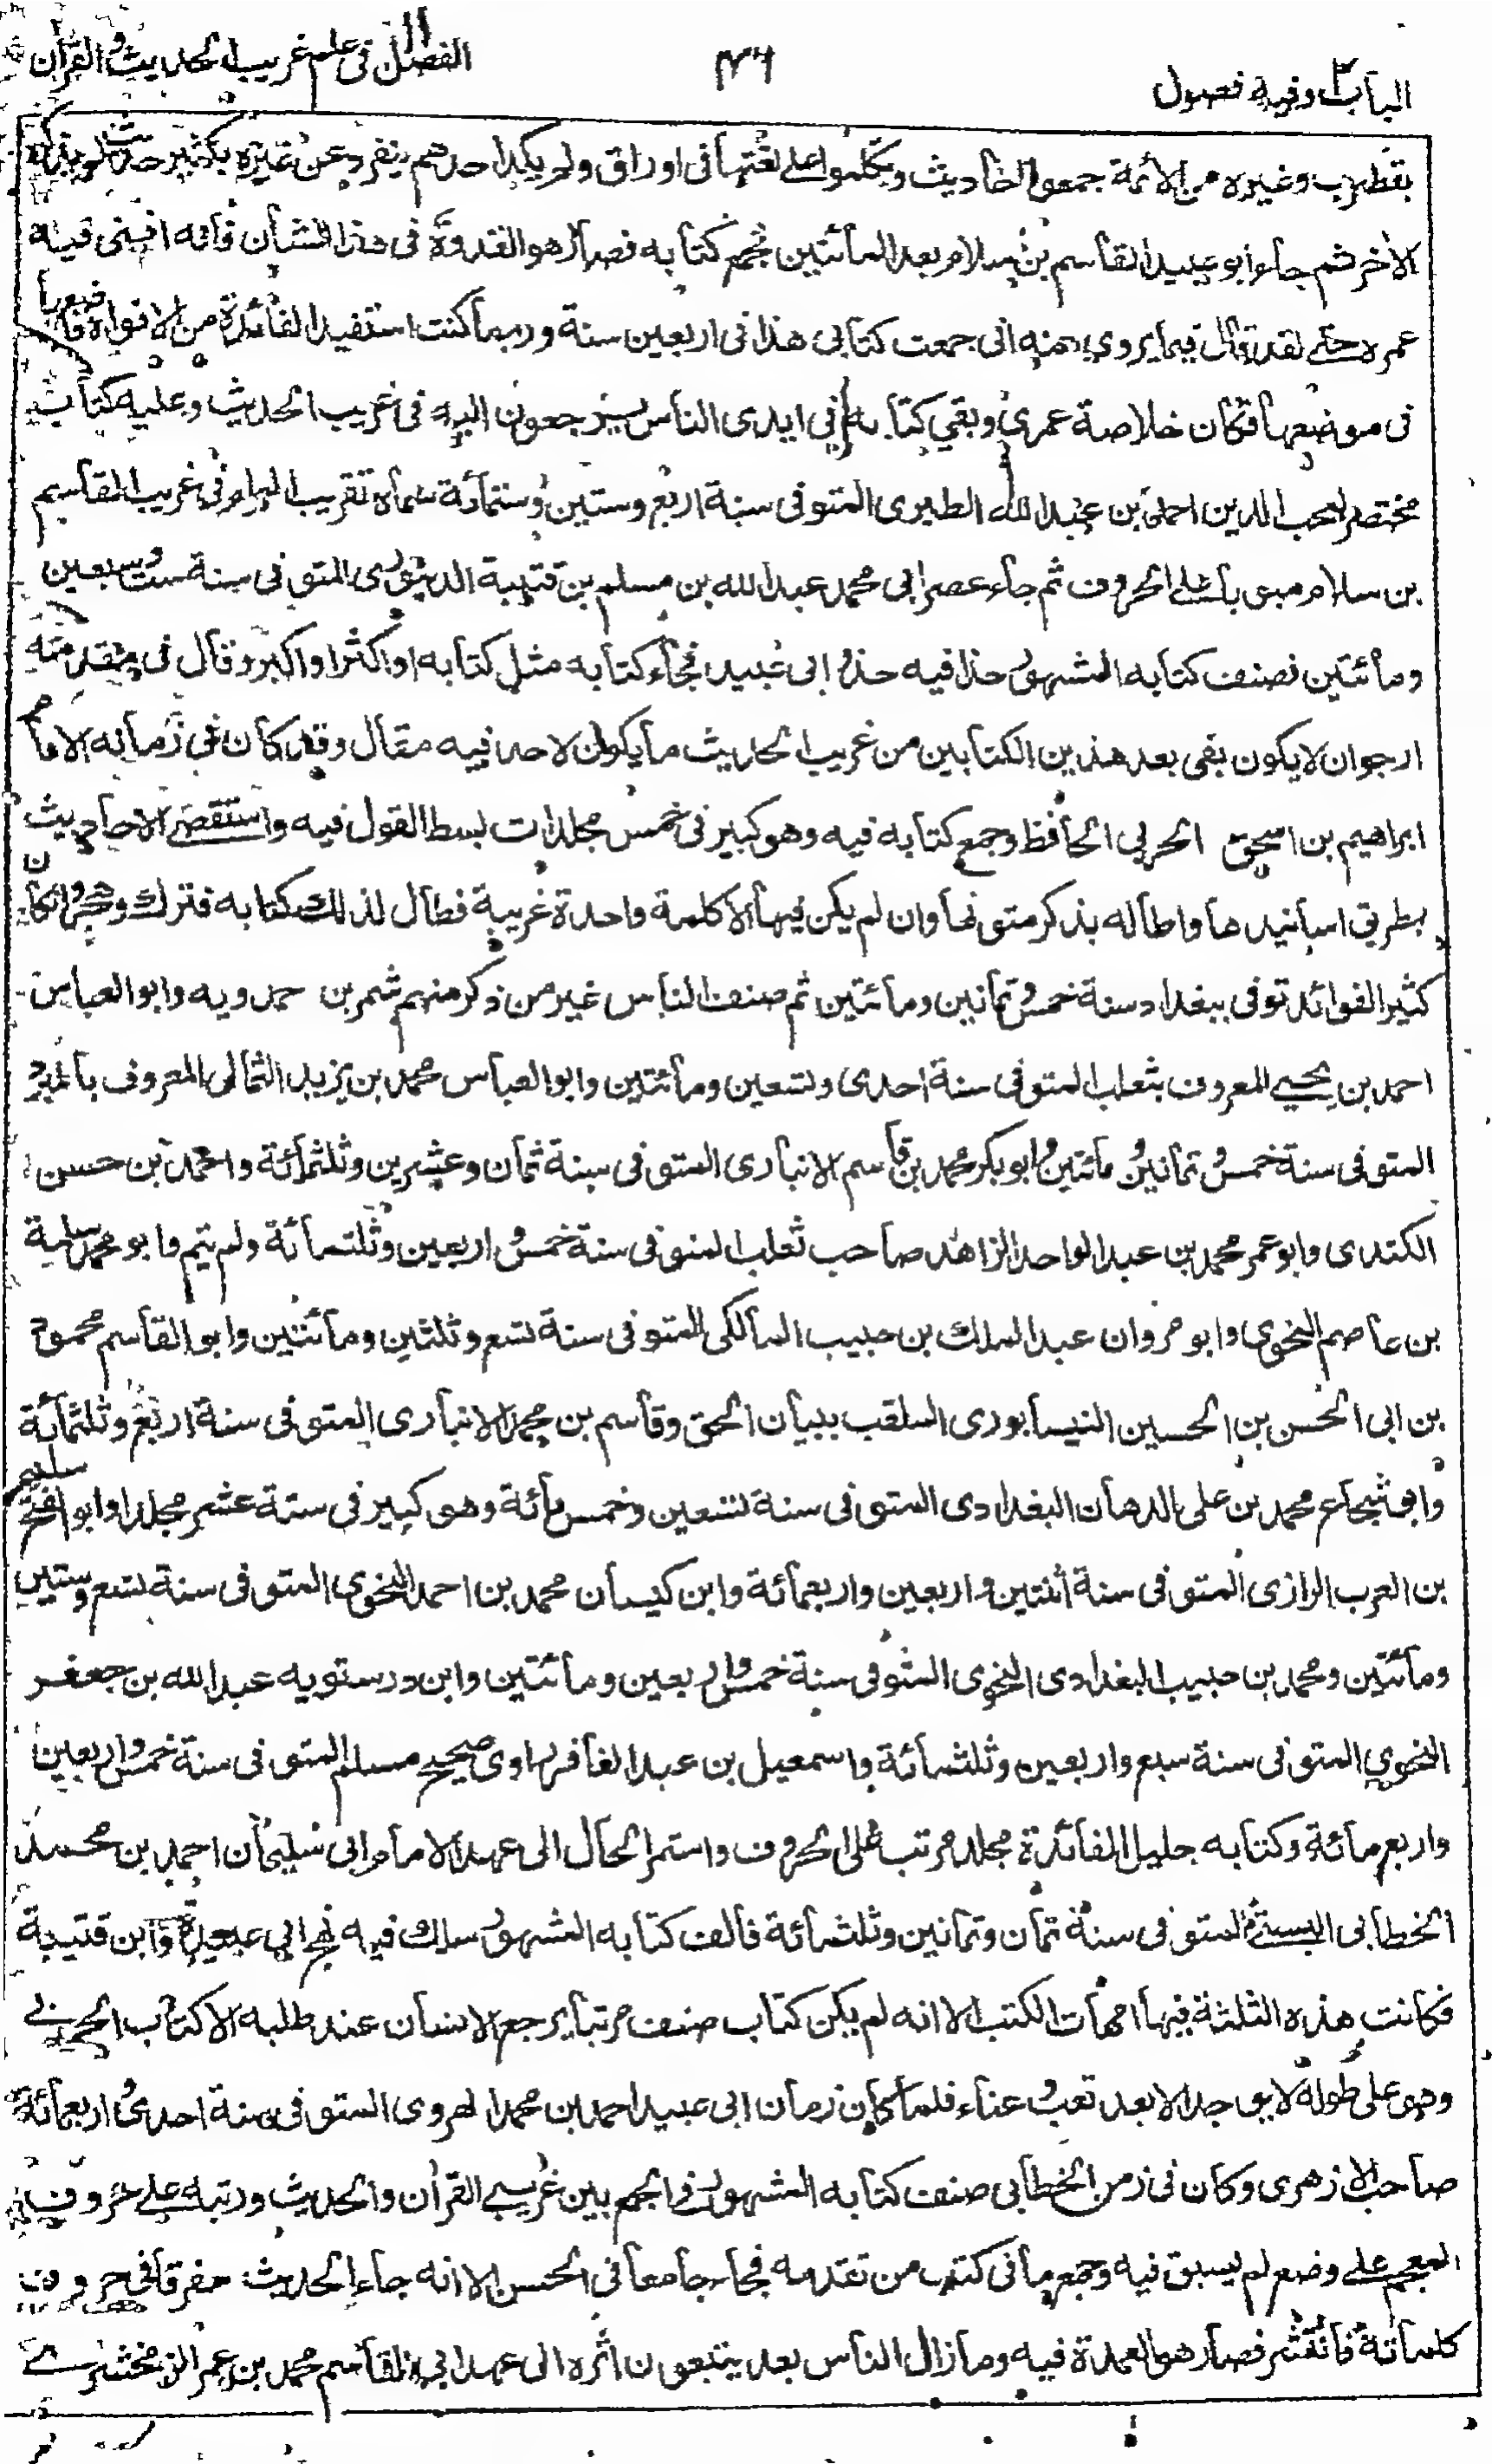 الباب ٣ وفيه فصول
٤٦
الفصل في علم غريب الحديث والقرآن
بقطرب وغيره من الأئمة جمعوا احاديث وتكلموا على لغتها في اوراق ولم يكد احدهم ينفرد عن غيره بكثير حديث لم يذكره
الآخر ثم جاء ابو عبيد القاسم بن سلام بعد المأتين فجمع كتابه فصار هو القدوة في هذا الشان فانه افنى فيه
عمره حتى لقد قال فيما يروى عنه اني جمعت كتابي هذا في اربعين سنة وربما كنت استفيد الفائدة من الافواه فاضعها
في موضعها فكان خلاصة عمري وبقي كتابه في ايدي الناس يرجعون اليه في غريب الحديث وعليه كتاب
مختصر لمحب الدين احمد بن عبد الله الطبري المتوفى سنة اربع وستين وستمائة سماه تقريب المرام في غريب القاسم
بن سلام مبوبا على الحروف ثم جاء عصر ابي محمد عبد الله بن مسلم بن قتيبة الدينوري المتوفى سنة ست وسبعين
ومأتين فصنف كتابه المشهور حذا فيه حذو ابي عبيد فجاء كتابه مثل كتابه او اكثر او اكبر وقال في مقدمته
ارجو ان لا يكون بقي بعد هذين الكتابين من غريب الحديث ما يكون لاحد فيه مقال وقد كان في زمانه الامام
ابراهيم بن اسحق الحربي الحافظ وجمع كتابه فيه وهو كبير في خمس مجلدات بسط القول فيه واستقصى الاحاديث
بطريق اسانيدها واطاله بذكر متونها وان لم يكن فيها الا كلمة واحدة غريبة فطال لذلك كتابه فترك وهجر وان كان
كثير الفوائد توفى ببغداد سنة خمس وثمانين ومأتين ثم صنف الناس غير من ذكر منهم شمر بن حمدويه وابو العباس
احمد بن يحيى المعروف بثعلب المتوفى سنة احدى وتسعين ومأتين وابو العباس محمد بن يزيد الثمالي المعروف بالمبرد
المتوفى سنة خمس وثمانين ومأتين وابو بكر محمد بن قاسم الانباري المتوفى سنة ثمان وعشرين وثلثمائة واحمد بن حسن
الكندي وابو عمر محمد بن عبد الواحد الزاهد صاحب ثعلب المتوفى سنة خمس واربعين وثلثمائة ولم يتم وابو محمد سلمة
بن عاصم النحوي وابو مروان عبد الملك بن حبيب المالكي المتوفى سنة تسع وثلثين ومأتين وابو القاسم محمود
بن ابي الحسن بن الحسين النيسابوري الملقب ببيان الحق وقاسم بن محمد الانباري المتوفى سنة اربع وثلثمائة
وابو شجاع محمد بن علي الدهان البغدادي المتوفى سنة تسعين وخمس مائة وهو كبير في ستة عشر مجلدا وابو الفتح سليم
بن العرب الرازي المتوفى سنة اثنتين واربعين واربعمائة وابن كيسان محمد بن احمد النحوي المتوفى سنة تسع وستين
ومأتين ومحمد بن حبيب البغدادي النحوي المتوفى سنة خمس واربعين ومأتين وابن درستويه عبد الله بن جعفر
النحوي المتوفى سنة سبع واربعين وثلثمائة واسمعيل بن عبد الغافر راوي صحيح مسلم المتوفى سنة خمس واربعين
واربع مائة وكتابه جليل الفائدة مجلد مرتب على الحروف واستمر الحال الى عهد الامام ابي سليمان احمد بن محمد
الخطابي البستي المتوفى سنة ثمان وثمانين وثلثمائة فالف كتابه المشهور سلك فيه نهج ابي عبيدة وابن قتيبة
فكانت هذه الثلثة فيها امهات الكتب الا انه لم يكن كتاب صنف مرتبا يرجع الانسان عند طلبه الا كتاب الحربي
وهو على طوله لا يوجد الا بعد تعب وعناء فلما كان زمان ابي عبيد احمد بن محمد الهروي المتوفى سنة احدى واربعمائة
صاحب الازهري وكان في زمن الخطابي صنف كتابه المشهور في الجمع بين غريبي القرآن والحديث ورتبه على حروف
المعجم على وضع لم يسبق فيه وجمع ما في كتب من تقدمه فجاء جامعا في الحسن الا انه جاء الحديث مفرقا في حروف
كلماته فانتشر فصار هو العمدة فيه وما زال الناس بعده يتبعون اثره الى عهد ابي القاسم محمد بن عمر الزمخشري